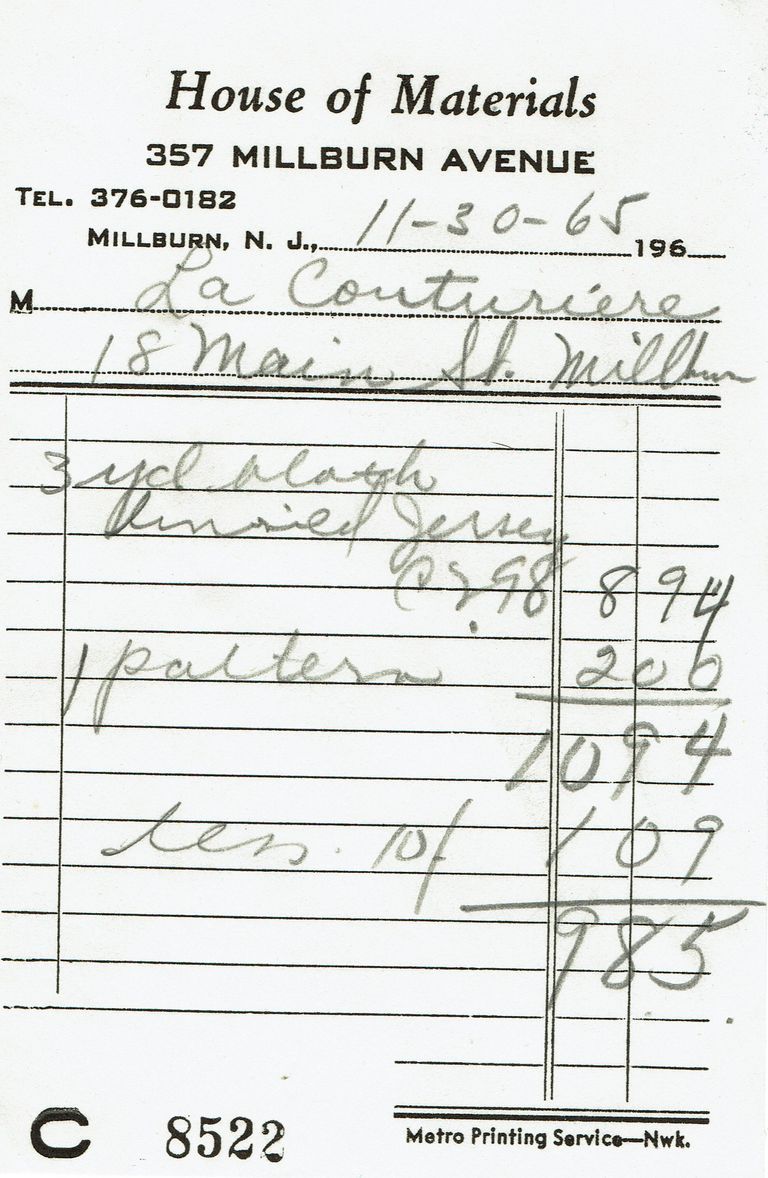 House of Materials
357 MILLBURN AVENUE
TEL. 376-0182
MILLBURN, N. J., 11-30-65 196
M La Couturiere
18 Main St. Millburn
3 yd
Jersey
@ 2.98 8 94
1 pattern 2 00
10 94
less 10% 1 09
9 85
C 8522
Metro Printing Service—Nwk.